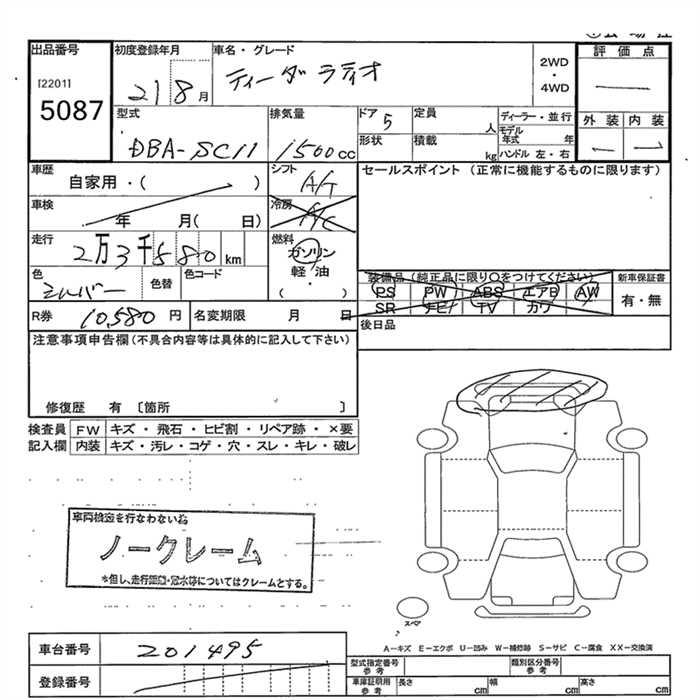 出品番号
[2201]
5087
初度登録年月
21 8月
車名・グレード
ティーダ ラティオ
2WD
・
4WD
評価点
外装 内装
型式
DBA-SC11
排気量
1500cc
ドア 5
形状
定員
人
積載
kg
ディーラー・並行
モデル年式 年
ハンドル 左・右
車歴
自家用・( )
シフト
A/T
車検
年 月( 日)
冷房
A/C
走行
2万3千580km
燃料
ガソリン
軽油
・
( )
色
シルバー
色替
色コード
R券
10,580円
名変期限 月 日
セールスポイント (正常に機能するものに限ります)
装備品(純正品に限り○をつけてください)
PS PW ABS エアB AW
SR ナビ TV カワ
新車保証書
有・無
後日品
注意事項申告欄(不具合内容等は具体的に記入して下さい)
修復歴 有〔箇所 〕
検査員記入欄
FW キズ・飛石・ヒビ割・リペア跡・×要
内装 キズ・汚レ・コゲ・穴・スレ・キレ・破レ
車両検査を行なわない為
ノークレーム
*但し、走行距離・冠水等についてはクレームとする。
スペア
A-キズ E-エクボ U-凹み W-補修跡 S-サビ C-腐食 XX-交換済
車台番号
201495
登録番号
型式指定番号参考
類別区分番号参考
車庫証明用参考
長さ cm 幅 cm 高さ cm